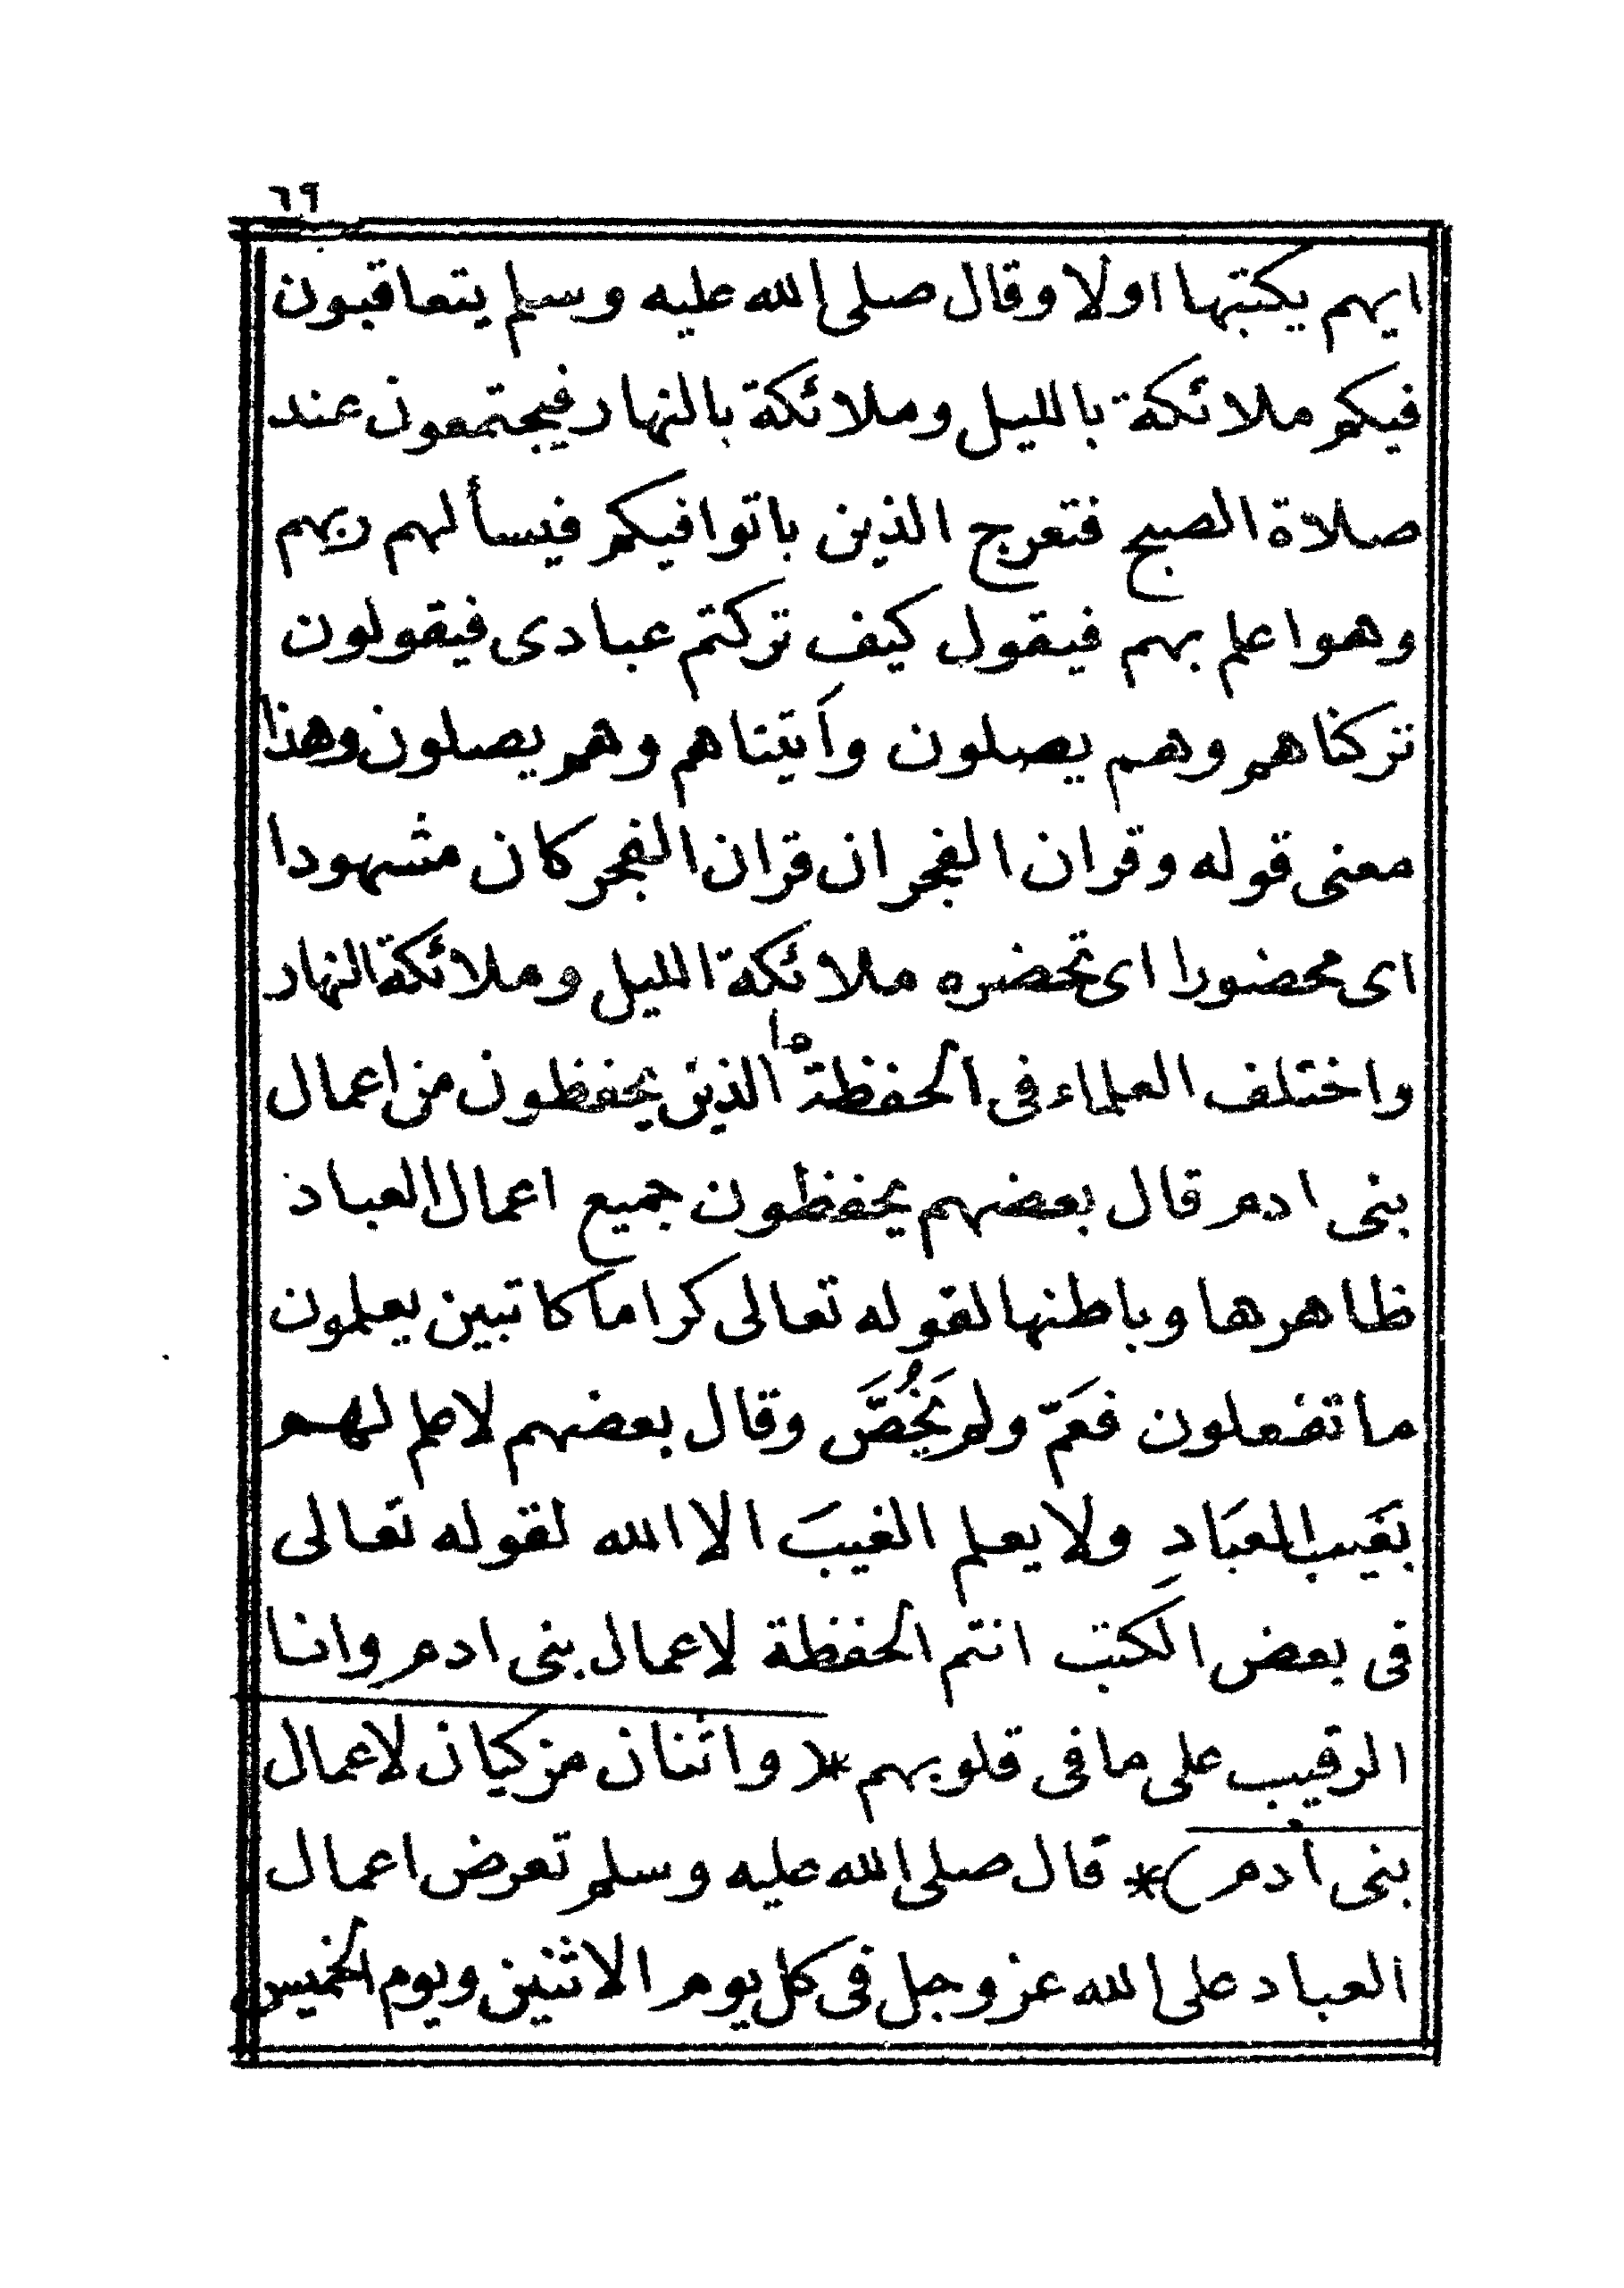 ٦٩
ايهم يكتبها اولا وقال صلى الله عليه وسلم يتعاقبون
فيكم ملائكة بالليل وملائكة بالنهار فيجتمعون عند
صلاة الصبح فتعرج الذين باتوا فيكم فيسألهم ربهم
وهو اعلم بهم فيقول كيف تركتم عبادى فيقولون
تركناهم وهم يصلون وأتيناهم وهم يصلون وهذا
معنى قوله وقران الفجر ان قران الفجر كان مشهودا
اى محضورا اى تحضره ملائكة الليل وملائكة النهار
واختلف العلماء فى الحفظة الذين يحفظون من اعمال
بنى ادم قال بعضهم يحفظون جميع اعمال العباد
ظاهرها وباطنها لقوله تعالى كراما كاتبين يعلمون
ما تفعلون فعَمّ ولم يَخُصَّ وقال بعضهم لا علم لهم
بغَيب العبَادِ ولا يعلم الغيبَ الا الله لقوله تعالى
فى بعض الكتب انتم الحفظة لاعمال بنى ادم وانا
الرقيب على ما فى قلوبهم *( واثنان مزكيان لاعمال
بنى أدم )* قال صلى الله عليه وسلم تعرض اعمال
العباد على الله عز وجل فى كل يوم الاثنين ويوم الخميس